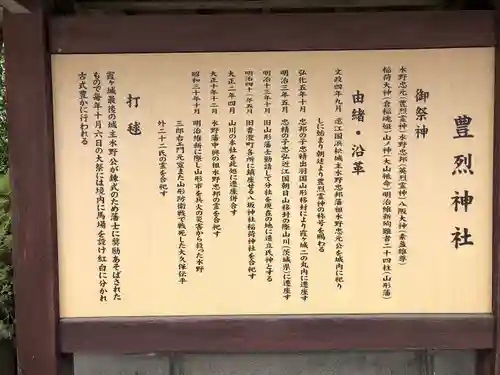 豊烈神社
御祭神
水野忠元(豊烈霊神)水野忠邦(英烈霊神)八阪大神(素盞雄尊)
稲荷大神(倉稲魂姫)山ノ神(大山祗命)明治維新殉難者二十四柱(山形藩)
由緒・沿革
文政四年九月 遠江国浜松城主水野忠邦藩祖水野忠元公を城内に祀り
しに始まり朝廷より豊烈霊神の称号を賜わる
弘化五年十月 忠邦の子忠精出羽国山形移封により霞ヶ城二の丸内に遷座す
明治三年五月 忠精の子忠弘近江国朝日山移封の際山川(茨城県)に遷座す
明治十三年十月 旧山形藩士勧請して分社を現在の地に造立氏神とする
明治四十一年五月 旧香澄町各所に鎮座せる八坂神社稲荷神社を合祀す
大正二年四月 山川の本社を此処に遷座併合す
大正十年十二月 水野藩中興の祖水野忠邦の霊を合祀す
昭和三十年十月 明治維新に際し山形市を兵火の災害から救った水野
三郎右エ門元宣また山形防衛戦で戦死した大久保伝平
外二十二氏の霊を合祀す
打毬
霞ヶ城最後の城主水野公が練武のため藩士に奨励あそばされた
もので毎年十月六日の大祭には境内に馬場を設け紅白に分かれ
古式豊かに行われる